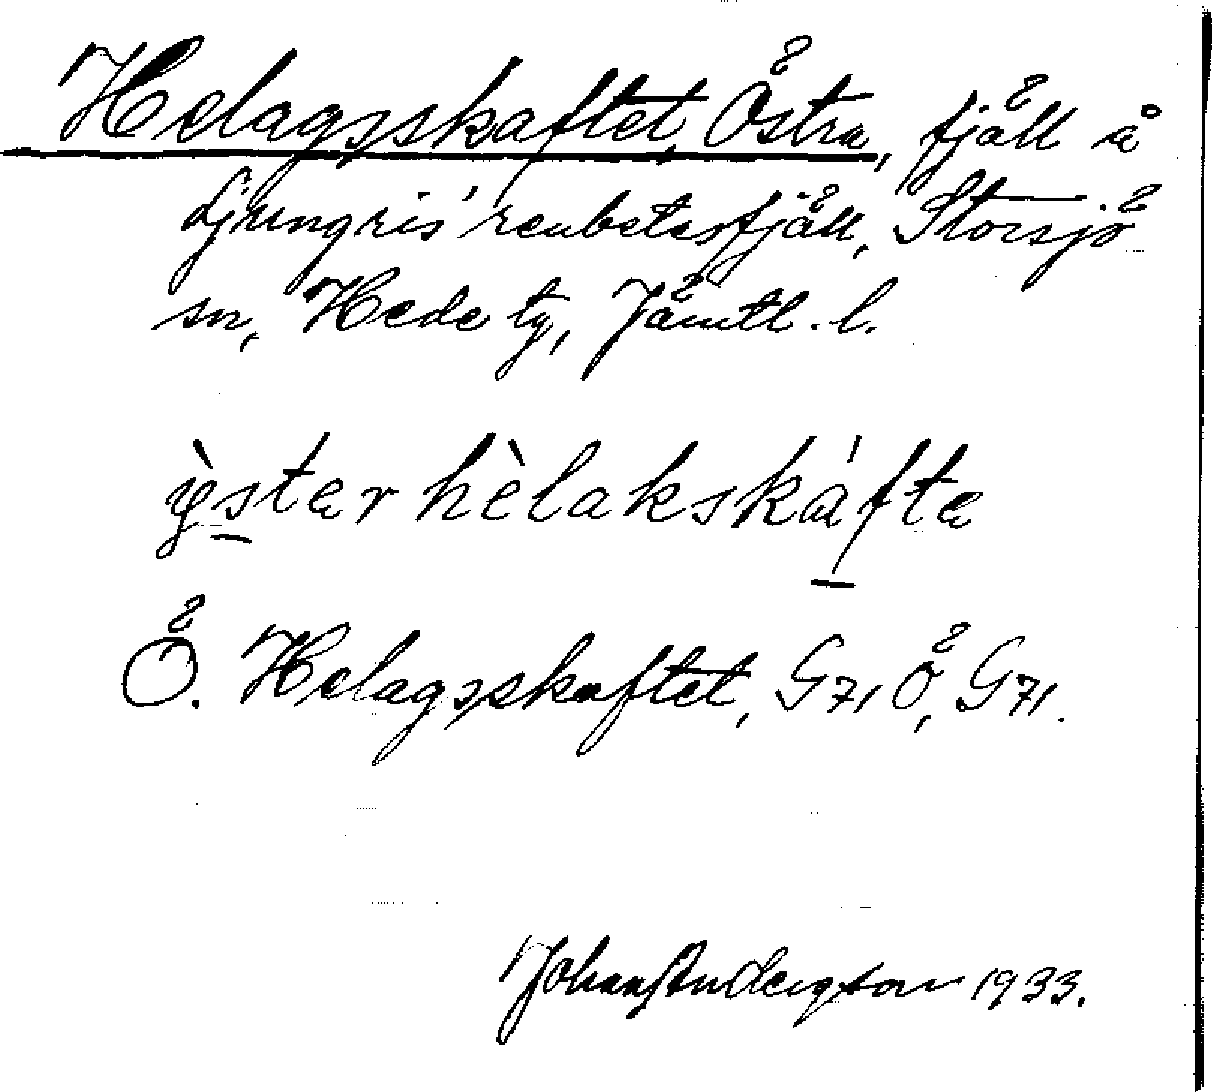 Helagsskaftet, Östra, fjäll å
Ljungris' renbetesfjäll, Storsjö
sn, Hede tg, Jämtl. l.
ỳster hèlakskáfta
Ö. Helagsskaftet, G71 Ö, G71.
Johan Andersson 1933.